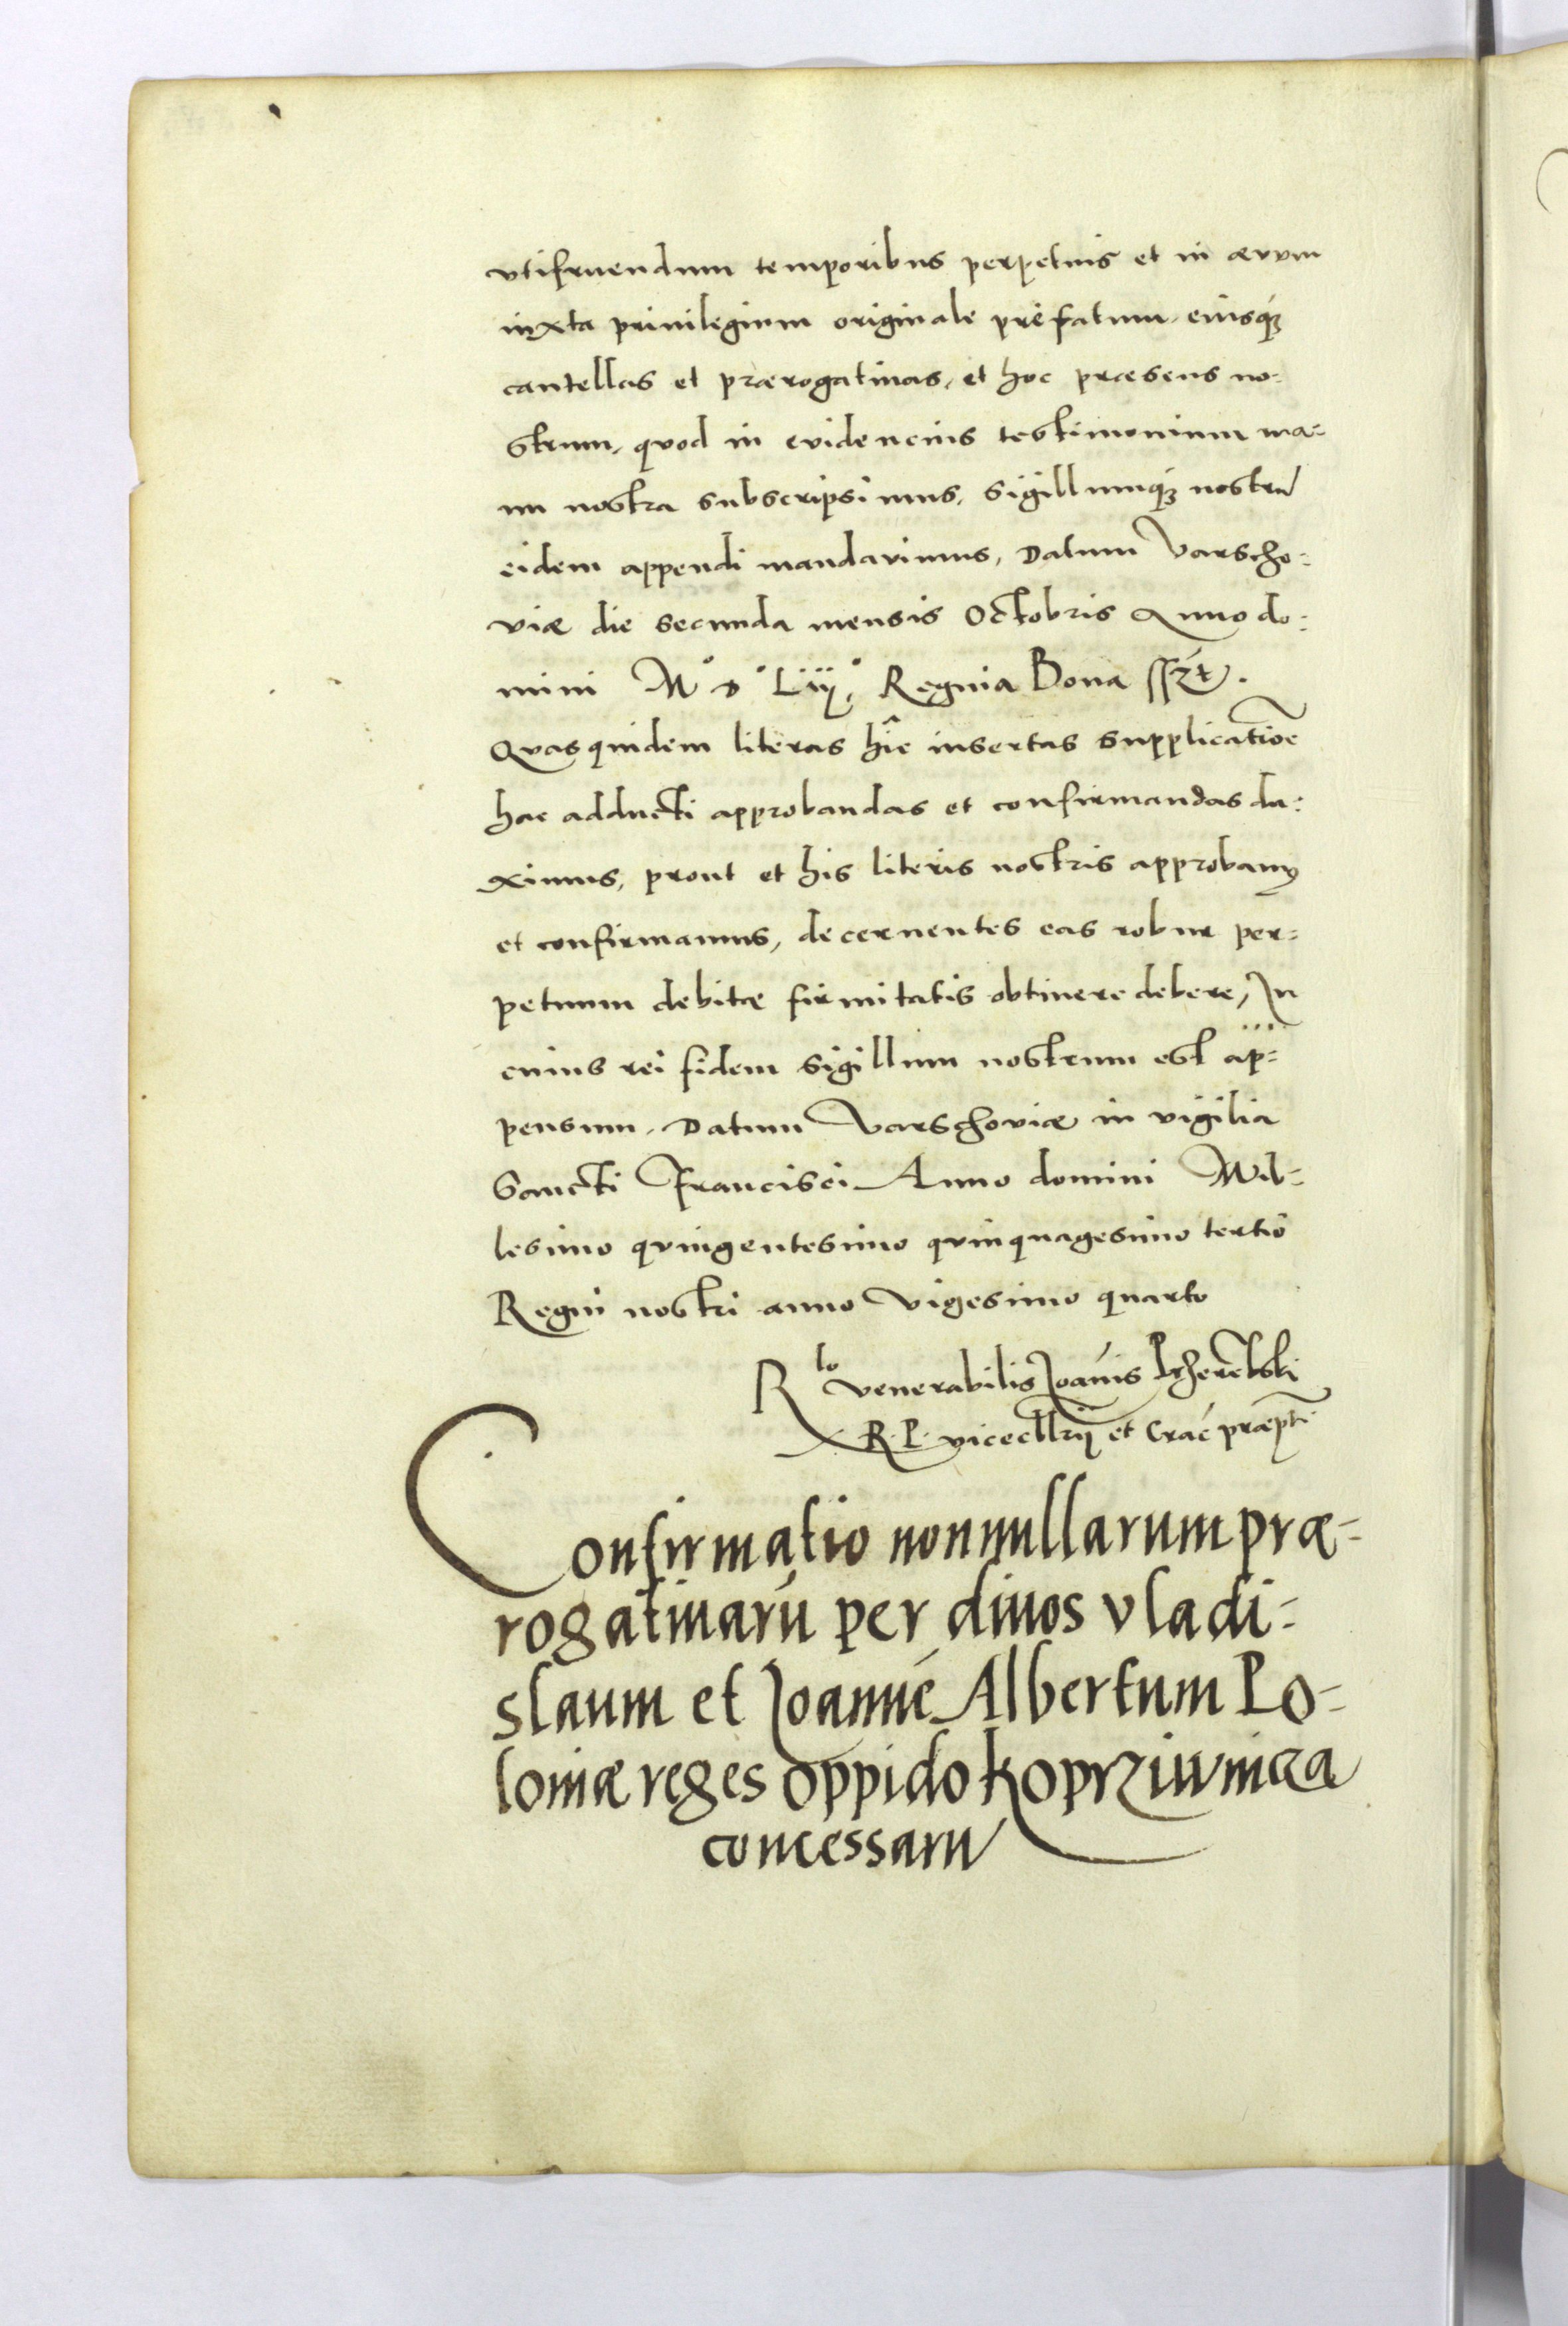 vtifruendum temporibus perpetuis et in aevum
iuxta priuilegium originale prefatum, eiusq́ꝫ
cautellas et prærogatiuas, et hoc præsens no-
strum, quod in euidencius testimonium ma-
nu nostra subscripsimus, sigillumq́ꝫ nostrū
eidem appendi mandauimus, Datum Varscho-
viæ die secunda mensis Octobris Anno do-
mini M° D° Liij° Regina Bona sszt.
Quas quidem literas hîc insertas supplicatioē
hac adducti approbandas et confirmandas du-
ximus, prout et his literis nostris approbamꝰ
et confirmamus, decernentes eas robur per-
petuum debitæ firmitatis obtinere debere, In
cuius rei fidem sigillum nostrum est ap-
pensum. Datum Varschoviæ in vigilia
Sancti Francisci Anno domini Mil-
lesimo quingentesimo quinquagesimo tertio
Regni nostri anno vigesimo quarto
Rlo venerabilis Joānis Prherębski
R. P. vicecllrij et Crac̄ præpti
Confirmatio nonnullarum præ-
rogatiuarū per diuos vladi-
slaum et Joannē Albertum Po-
loniæ reges oppido koprziwnicza
concessarū